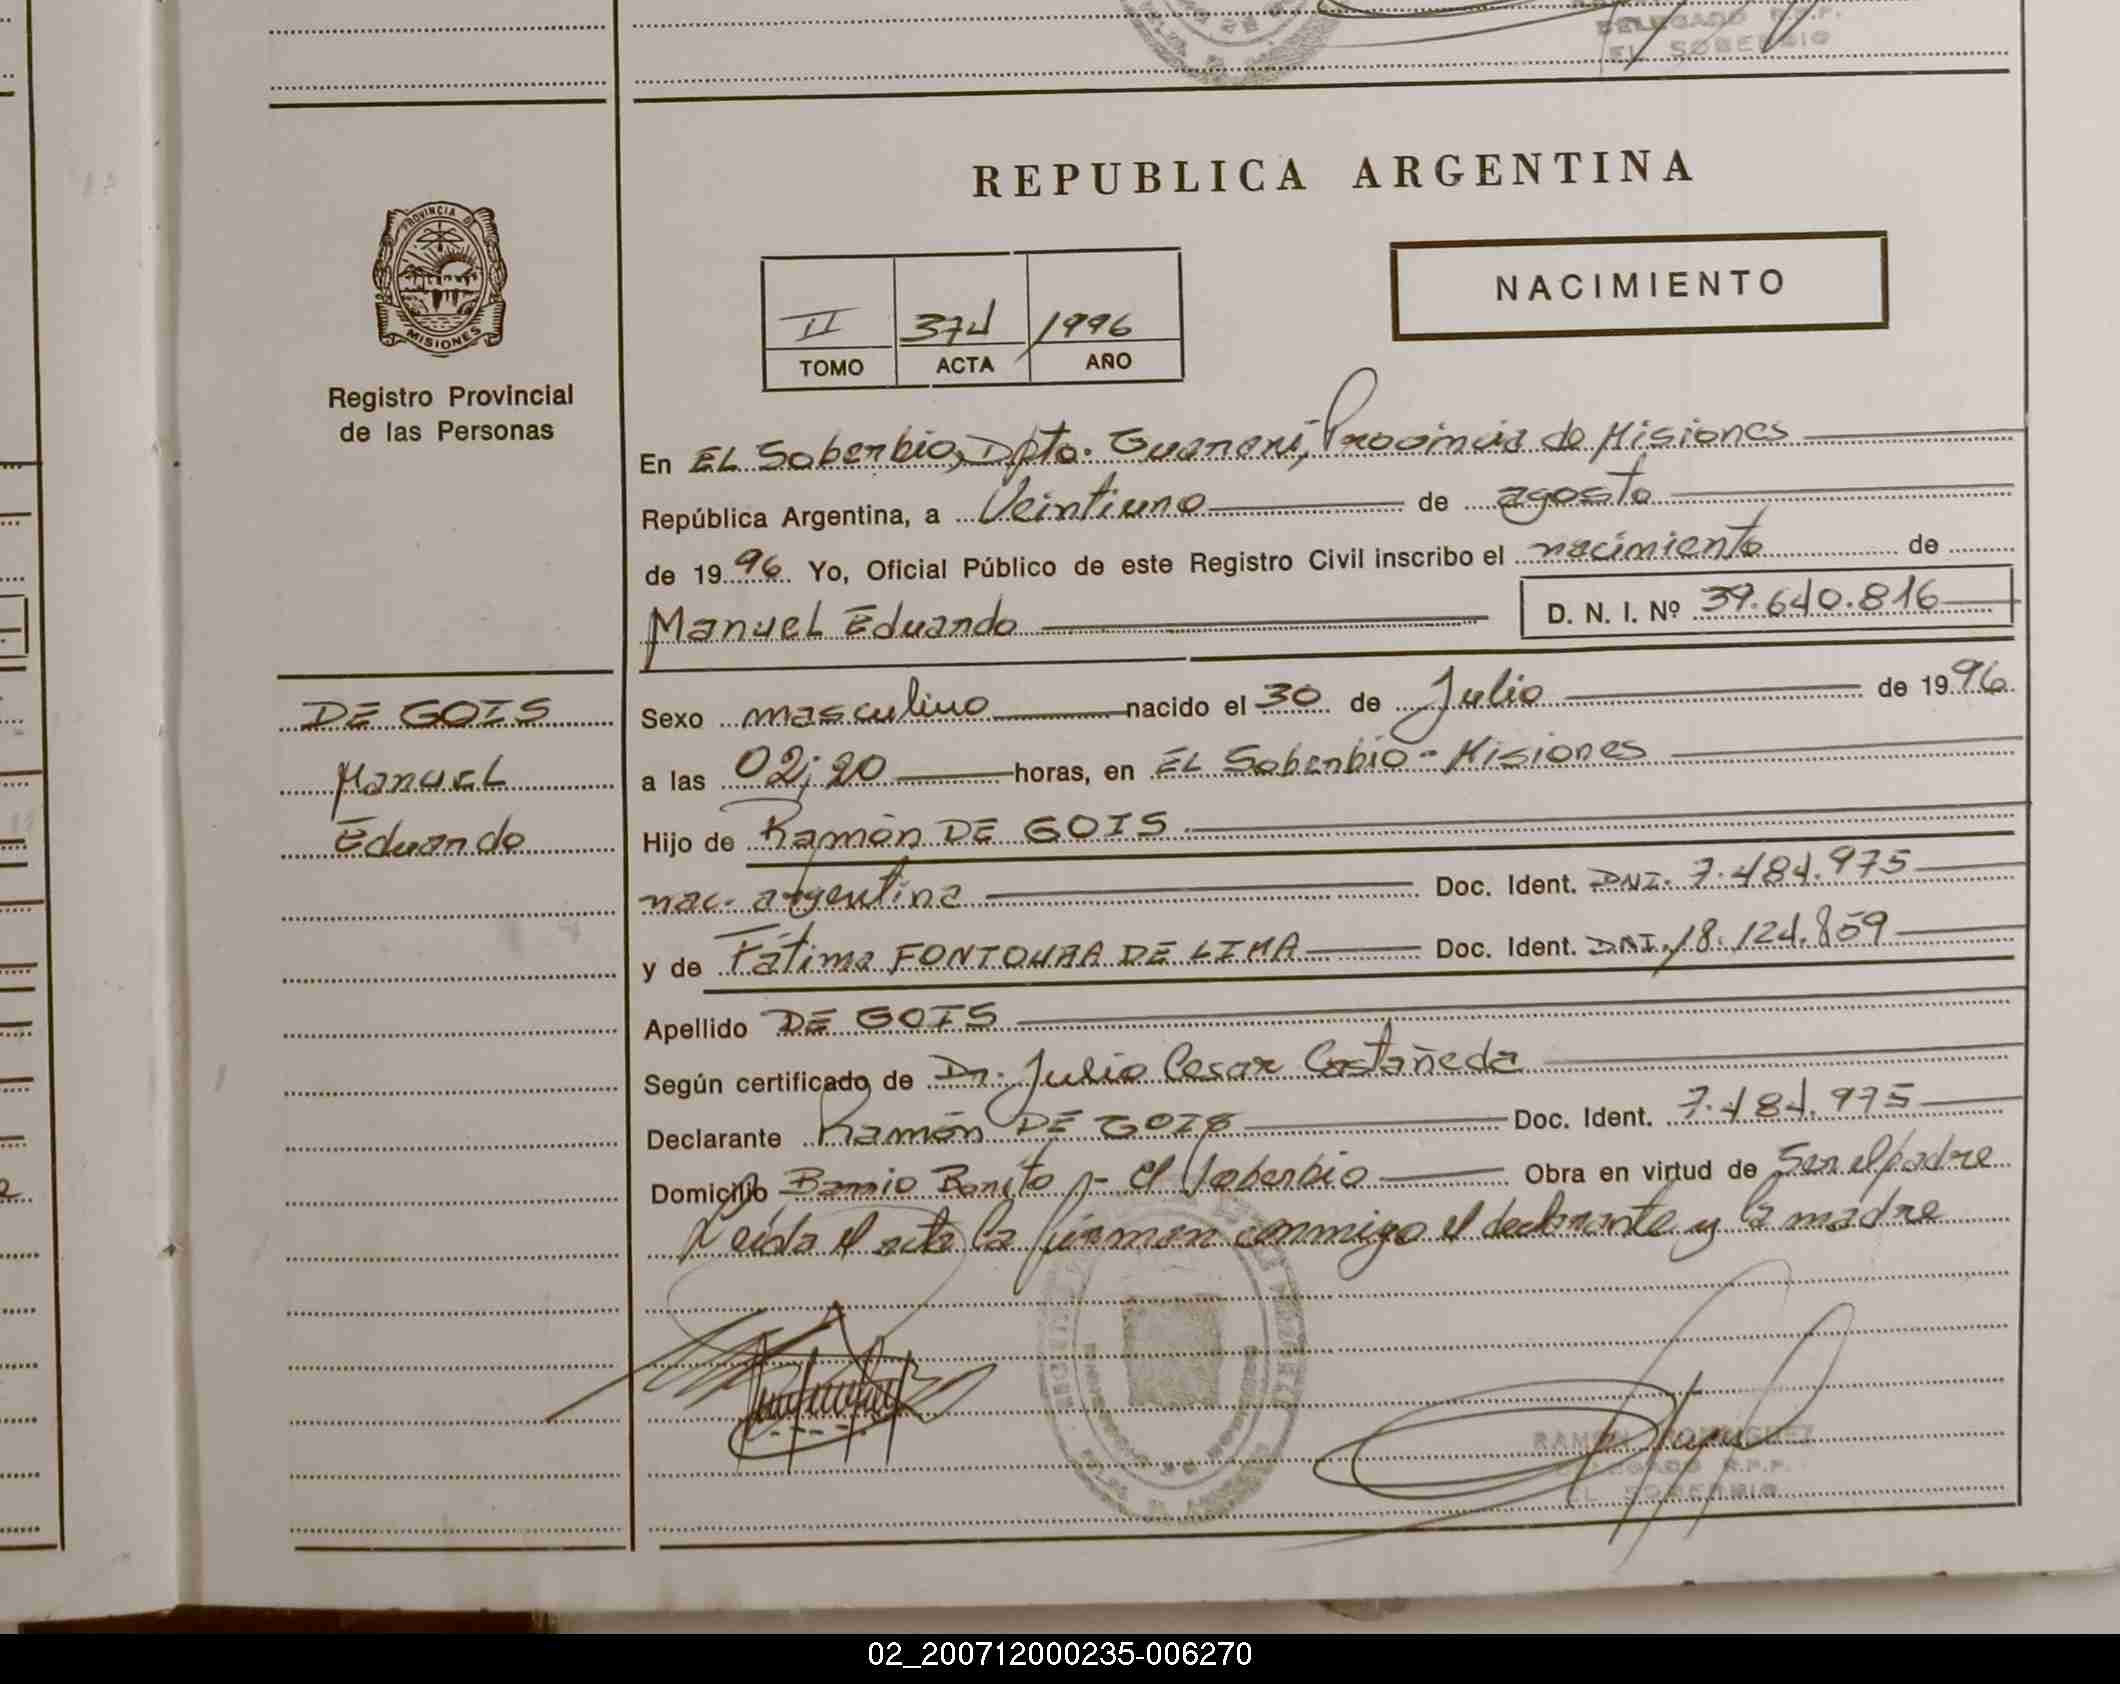 DELEGADO R.P.P.
EL SOBERBIO
REPUBLICA ARGENTINA
PROVINCIA D
MISIONES
Registro Provincial
de las Personas
II 374 1996
TOMO ACTA AÑO
NACIMIENTO
En EL Soberbio, Dpto. Guaraní, Provincia de Misiones
República Argentina, a Veintiuno de agosto
de 1996 Yo, Oficial Público de este Registro Civil inscribo el nacimiento de
Manuel Eduardo D. N. I. Nº 39.640.816
DE GOIS
Manuel
Eduardo
Sexo masculino nacido el 30 de Julio de 1996
a las 02;20 horas, en EL Soberbio - Misiones
Hijo de Ramón DE GOIS
nac. argentina Doc. Ident. DNI. 7.484.975
y de Fátima FONTOURA DE LIMA Doc. Ident. DNI. 18.124.859
Apellido DE GOIS
Según certificado de Dr. Julio Cesar Castañeda
Declarante Ramón DE GOIS Doc. Ident. 7.484.975
Domicilio Barrio Bonito - El Soberbio Obra en virtud de Ser el padre
Leída el acta la firman conmigo el declarante y la madre
RAMON RODRIGUEZ
DELEGADO R.P.P.
EL SOBERBIO
02_200712000235-006270